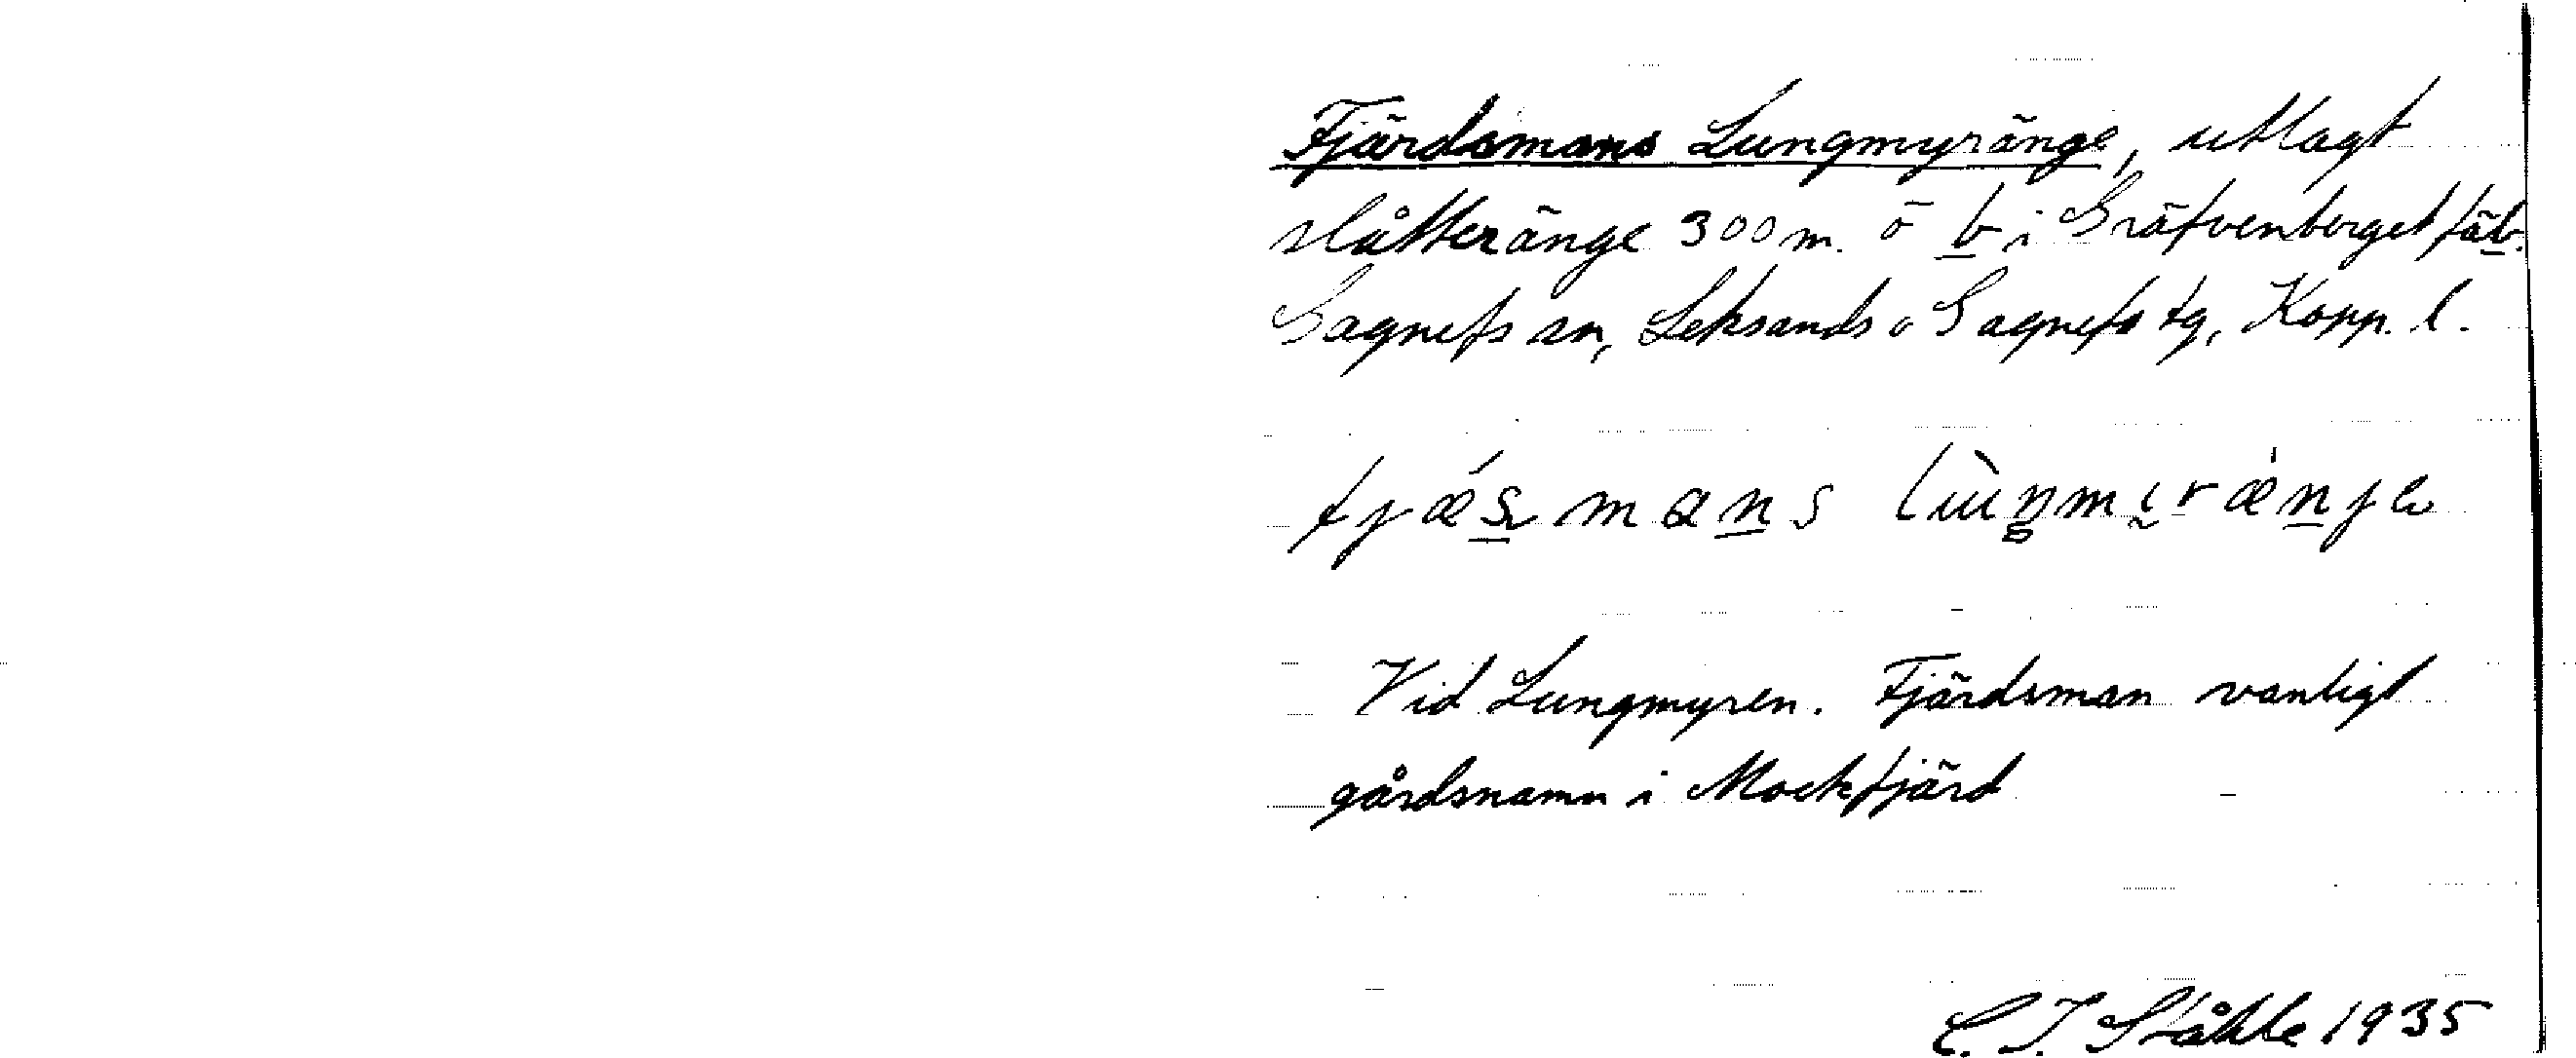 Fjärdsmans Lungmyränge, utlagt
slåtteränge 300 m. ö b i Gräfvenberget fäb.
Gagnefs sn, Leksands o Gagnefs tg, Kopp. l.
Vid Lungmyren. Fjärdsman vanligt
gårdsnamn i Mockfjärd
C. I. Ståhle 1935